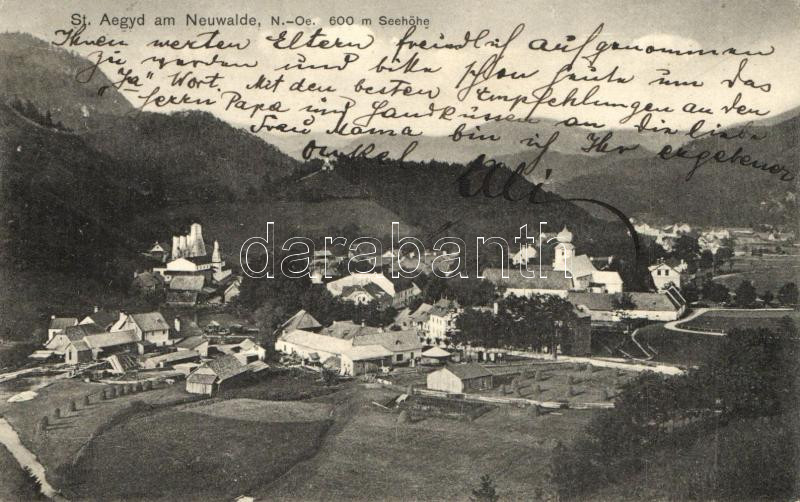 St. Aegyd am Neuwalde, N.-Oe. 600 m Seehöhe
Ihren werten Eltern freundlich aufgenommen
zu werden und bitte schon heute um das
"Ja" Wort. Mit den besten Empfehlungen an den
Herrn Papa und Handküssen an die liebe
Frau Mama bin ich Ihr ergebener
darabanti.com